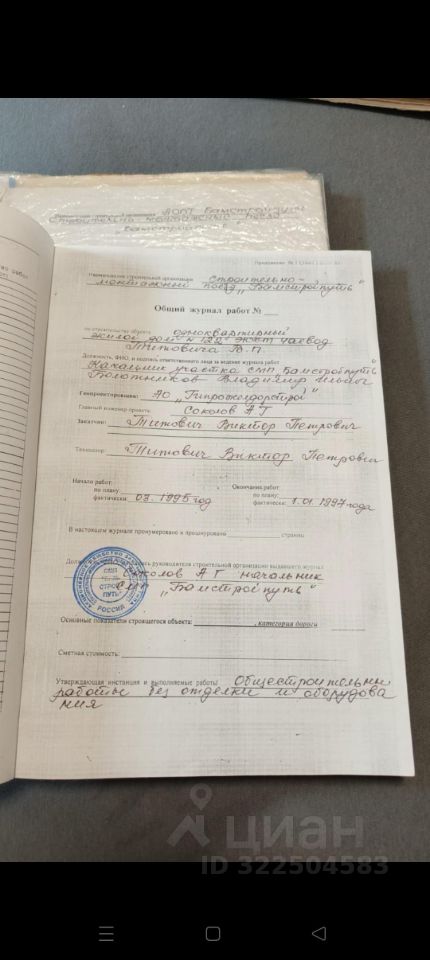 АОПТ Бамстройпуть
Строительно-монтажный поезд
„Бамстройпуть"
Наименование строительной организации Строительно-
монтажный поезд „Бамстройпуть"
Общий журнал работ №
по строительству объекта одноквартирный
жилой дом N 122
Титовича В.П.
Должность, ФИО, и подпись ответственного лица за ведение журнала работ
Начальник участка СМП Бамстройпуть
Болотников Владимир Ильич
Генпроектировщик: АО „Гипрожелдорстрой"
Главный инженер проекта: Соколов АГ
Заказчик: Титович Виктор Петрович
Титович Виктор Петрович
Начало работ: Окончания работ
по плану: по плану:
фактически: 03.1995 год фактически: 1.01.1997 года
В настоящем журнале пронумеровано и прошнуровано страниц
руководителя строительной организации выдавшего журнал
Соколов АГ начальник
СМП „Бамстройпуть"
СМП
СТРОЙ
ПУТЬ
РОССИЯ
Основные показатели строящегося объекта: , категория дороги
Сметная стоимость:
Утверждающая инстанция и выполняемые работы: Общестроительны
работы без отделки и оборудова
ния
циан
ID 322504583